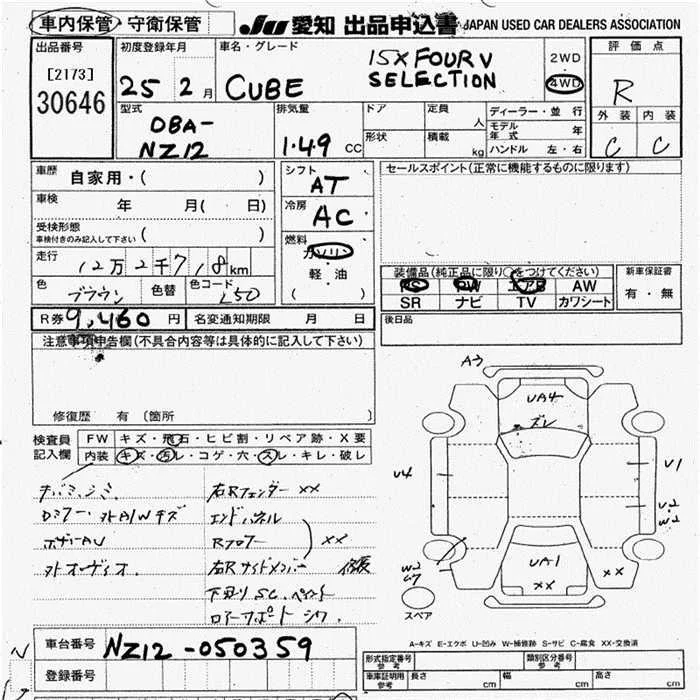 車内保管・守衛保管 JU 愛知 出品申込書 JAPAN USED CAR DEALERS ASSOCIATION
出品番号 初度登録年月 車名・グレード 評価点
[2173] 25 2月 CUBE 15X FOUR V 2WD R
30646 SELECTION 4WD
型式 排気量 ドア 定員 人 ディーラー・並行 外装 内装
DBA- 1.49 CC 形状 積載 kg モデル年式 年 C C
NZ12 ハンドル 左・右
車歴 自家用・( ) シフト AT セールスポイント(正常に機能するものに限ります)
車検 年 月( 日) 冷房 AC
受検形態 ( )
車検付きのみ記入して下さい
燃料 ガソリン
走行 12万2千718km 軽・油
( )
装備品(純正品に限り○をつけてください) 新車保証書
PS PW エアB AW 有・無
SR ナビ TV カワシート
色 ブラウン 色替 色コード L50
R券 9,460円 名変通知期限 月 日 後日品
注意事項申告欄(不具合内容等は具体的に記入して下さい)
修復歴 有 〔箇所
検査員 FW キズ・飛石・ヒビ割・リペア跡・X要
記入欄 内装 キズ・汚レ・コゲ・穴・スレ・キレ・破レ
右Rフェンダー XX
エンドパネル
Rフロアー XX
右Rサイドメンバー 修復
外オーディオ.
A3
UA4
ズレ
U4
U1
U2
W2
W2
UA1
XX
XX
スペア
A-キズ E-エクボ U-凹み W-補修跡 S-サビ C-腐食 XX-交換済
車台番号 NZ12-050359
登録番号
形式指定番号 参考 類別区分番号 参考
車庫証明用 参考 長さ cm 幅 cm 高さ cm